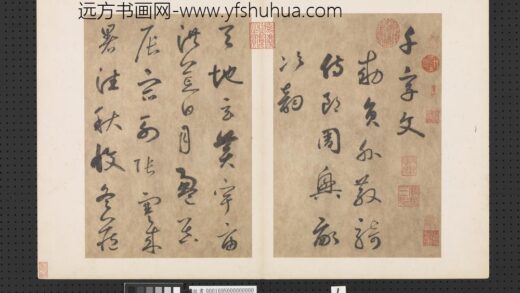 远方书画网-www.yfshuhua.com
千字文
勅員外散騎
侍郎周興嗣
次韻
天地玄黃宇宙
洪荒日月盈昃
辰宿列張寒来
暑往秋收冬藏